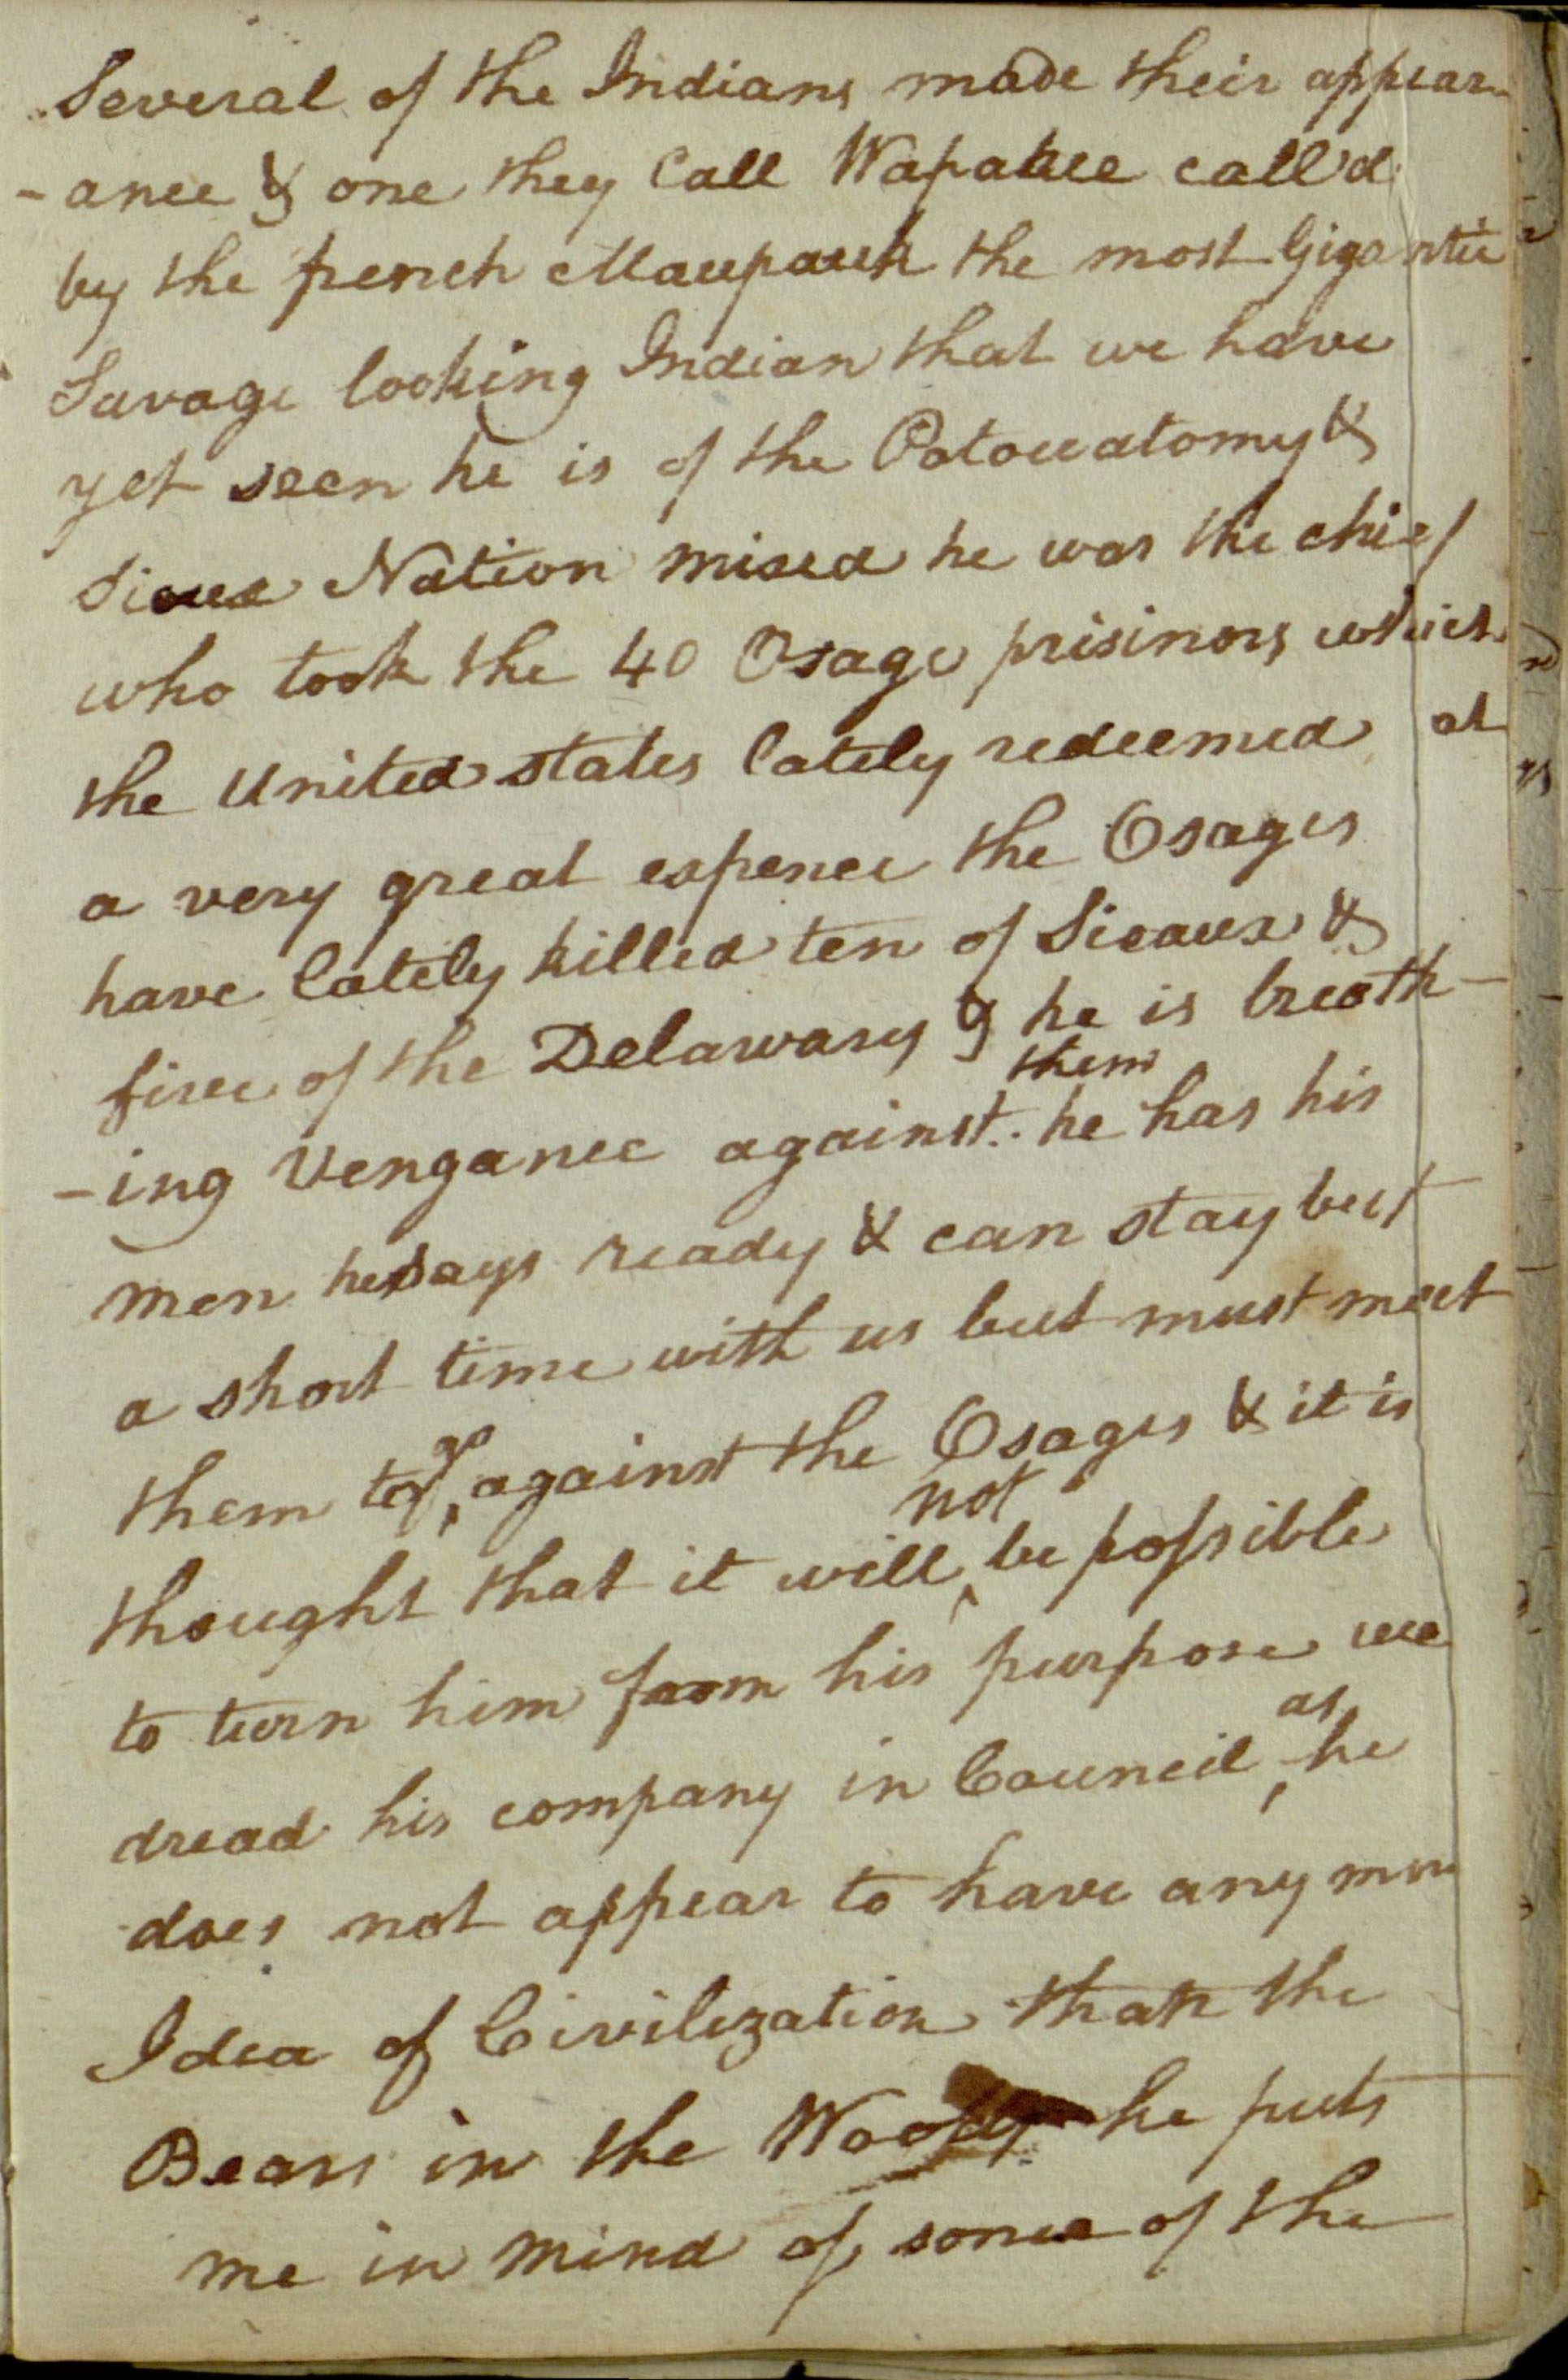 Several of the Indians made their appear-
-ance & one they Call Wapakee call'd
by the french Maupauk the most Gigantic
Savage looking Indian that we have
yet seen he is of the Potowatomy &
Sioux Nation mixed he was the chief
who took the 40 Osage prisinors which
the United states lately redeemed at
a very great expence the Osages
have lately killed ten of Sieaux &
five of the Delawarys & he is breath-
-ing Venganee against them he has his
men he says ready & can stay but
a short time with us but must meet
them to go against the Osages & it is
thought that it will not be possible
to turn him from his purpose we
dread his company in Council as he
does not appear to have any more
Idea of Civilization than the
Bears in the Woods he puts
me in mind of some of the